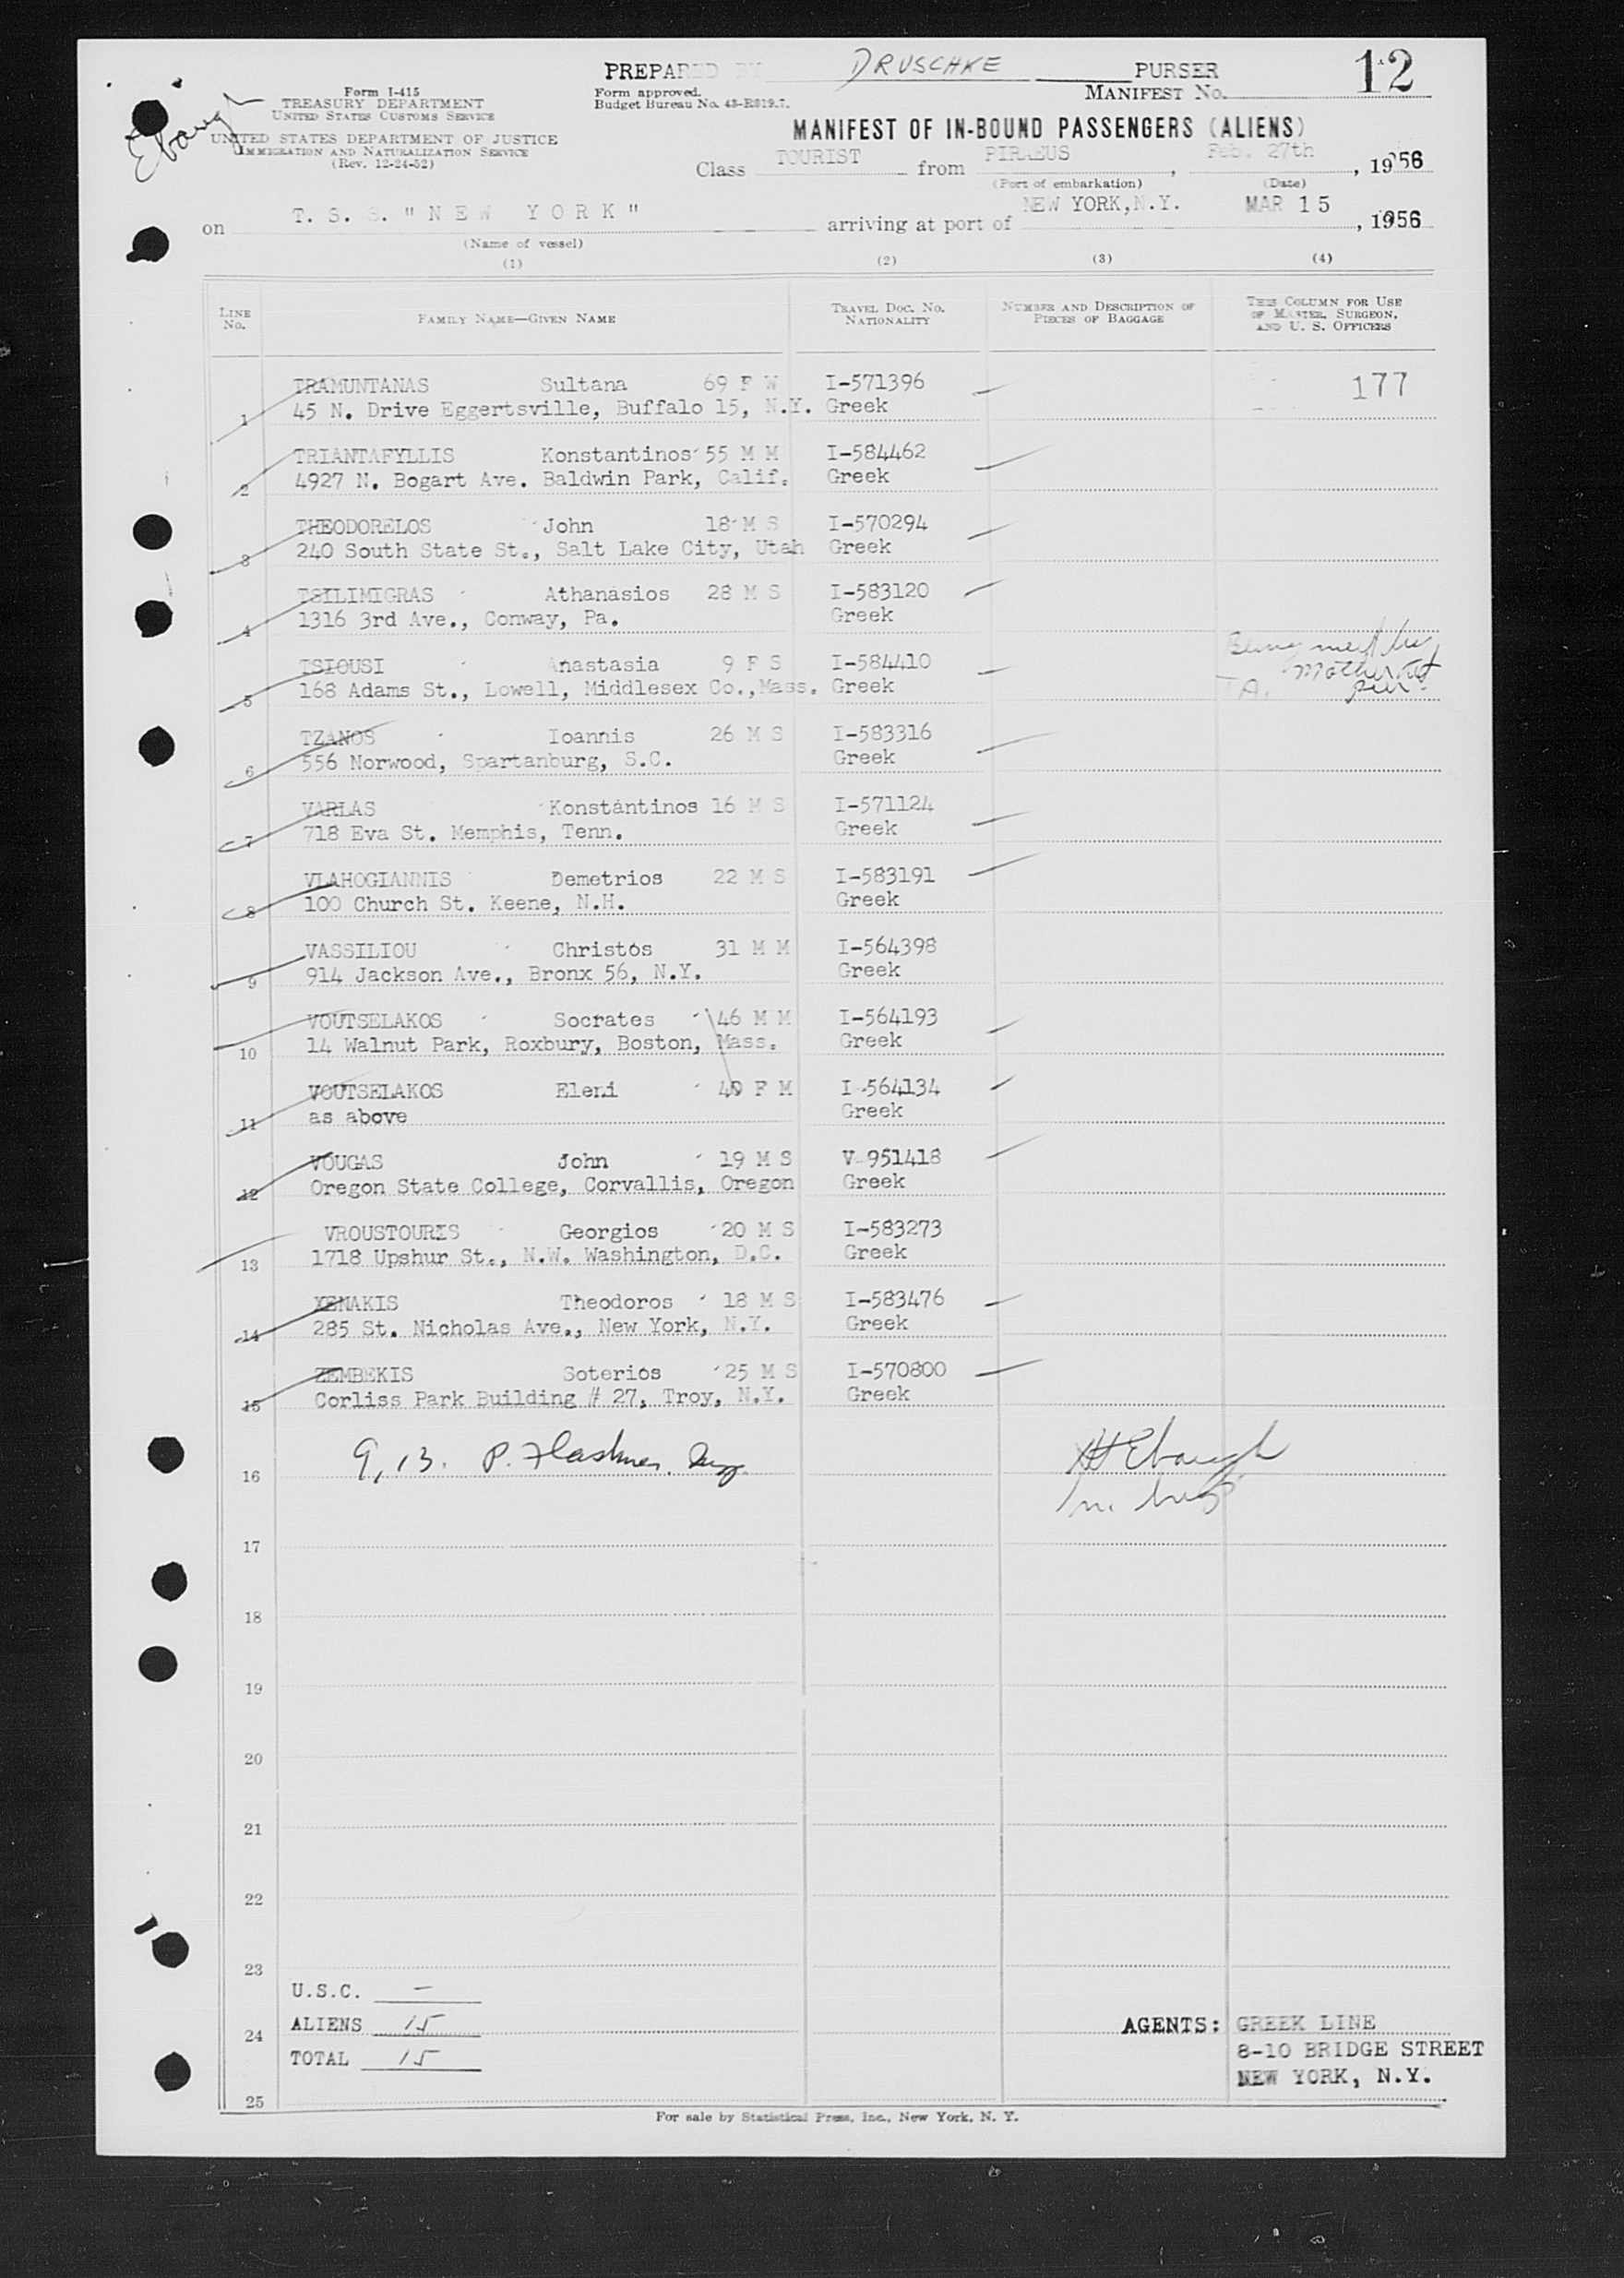 PREPARED BY DRUSCHKE PURSER 12
Form I-415
TREASURY DEPARTMENT
UNITED STATES CUSTOMS SERVICE
UNITED STATES DEPARTMENT OF JUSTICE
IMMIGRATION AND NATURALIZATION SERVICE
(Rev. 12-24-52)
Form approved.
Budget Bureau No. 43-R319.7.
MANIFEST No.
Ebaugh
MANIFEST OF IN-BOUND PASSENGERS (ALIENS)
Class TOURIST from PIRAEUS, Feb. 27th, 1956
(Port of embarkation) (Date)
on T. S. S. "NEW YORK" arriving at port of NEW YORK, N.Y. MAR 15, 1956
(Name of vessel)
(1) (2) (3) (4)
LINE No. FAMILY NAME—GIVEN NAME TRAVEL DOC. NO. NATIONALITY NUMBER AND DESCRIPTION OF PIECES OF BAGGAGE THIS COLUMN FOR USE OF MASTER, SURGEON, AND U. S. OFFICERS
TRAMUNTANAS Sultana 69 F W I-571396 177
1 45 N. Drive Eggertsville, Buffalo 15, N.Y. Greek
TRIANTAFYLLIS Konstantinos 55 M M I-584462
2 4927 N. Bogart Ave. Baldwin Park, Calif. Greek
THEODORELOS John 18 M S I-570294
3 240 South State St., Salt Lake City, Utah Greek
TSILIMIGRAS Athanasios 28 M S I-583120
4 1316 3rd Ave., Conway, Pa. Greek
TSIOUSI Anastasia 9 F S I-584410 Being met by Mother at pier.
5 168 Adams St., Lowell, Middlesex Co., Mass. Greek
TZANOS Ioannis 26 M S I-583316
6 556 Norwood, Spartanburg, S.C. Greek
VARLAS Konstantinos 16 M S I-571124
7 718 Eva St. Memphis, Tenn. Greek
VLAHOGIANNIS Demetrios 22 M S I-583191
8 100 Church St. Keene, N.H. Greek
VASSILIOU Christos 31 M M I-564398
9 914 Jackson Ave., Bronx 56, N.Y. Greek
VOUTSELAKOS Socrates 46 M M I-564193
10 14 Walnut Park, Roxbury, Boston, Mass. Greek
VOUTSELAKOS Eleni 40 F M I-564134
11 as above Greek
VOUGAS John 19 M S V-951418
12 Oregon State College, Corvallis, Oregon Greek
VROUSTOURIS Georgios 20 M S I-583273
13 1718 Upshur St., N.W. Washington, D.C. Greek
XENAKIS Theodoros 18 M S I-583476
14 285 St. Nicholas Ave., New York, N.Y. Greek
ZEMBEKIS Soterios 25 M S I-570800
15 Corliss Park Building # 27, Troy, N.Y. Greek
16 9, 13. P. HEbaugh
17
18
19
20
21
22
23
U.S.C. —
24 ALIENS 15 AGENTS: GREEK LINE
TOTAL 15 8-10 BRIDGE STREET
NEW YORK, N.Y.
25
For sale by Statistical Press, Inc., New York, N. Y.